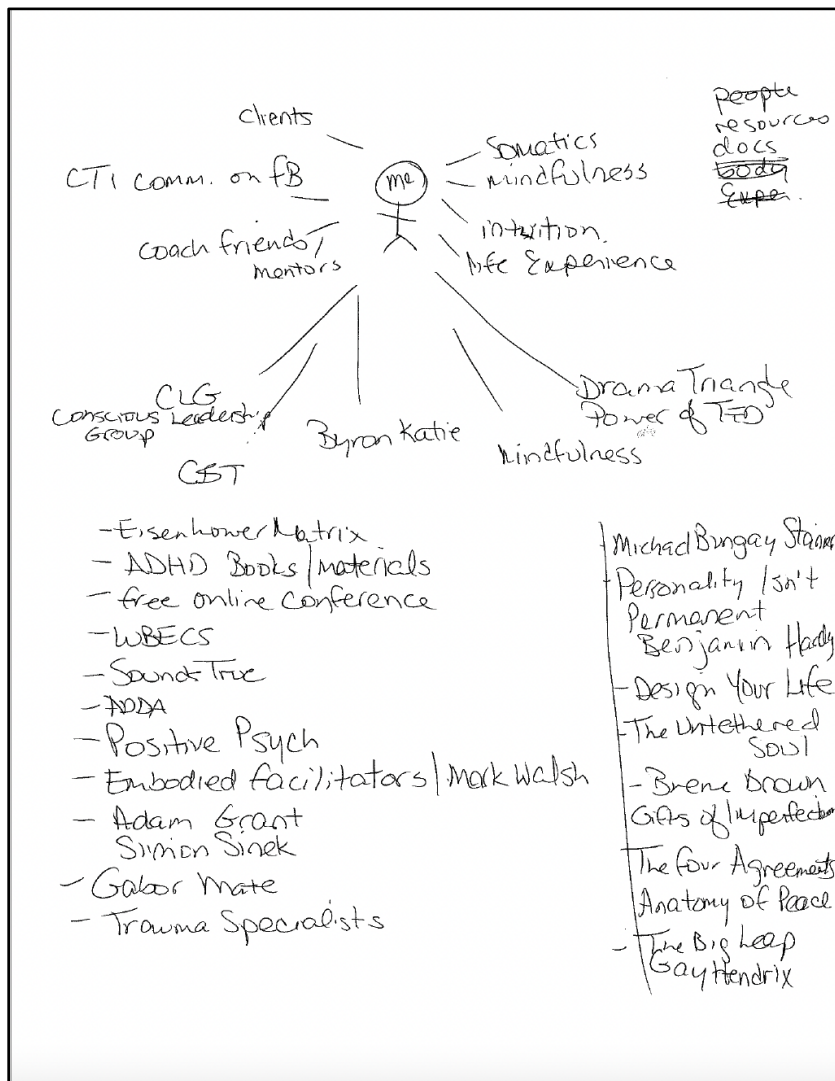 clients
CTI comm. on fB
coach friends/
mentors
me
Somatics
mindfulness
intuition.
life Experience
people
resources
docs
body
Exper.
CLG
Conscious Leadership
Group
CBT
Byron Katie
Mindfulness
Drama Triangle
Power of TED
- Eisenhower Matrix
- ADHD Books/materials
- free online conference
- WBECS
- Sounds True
- ADDA
- Positive Psych
- Embodied facilitators/Mark Walsh
- Adam Grant
Simon Sinek
- Gabor Mate
- Trauma Specialists
- Michael Bungay Stainer
- Personality Isn't
Permanent
Benjamin Hardy
- Design Your Life
- The Untethered
Soul
- Brene Brown
Gifts of Imperfection
The four Agreements
Anatomy of Peace
- The Big Leap
Gay Hendrix